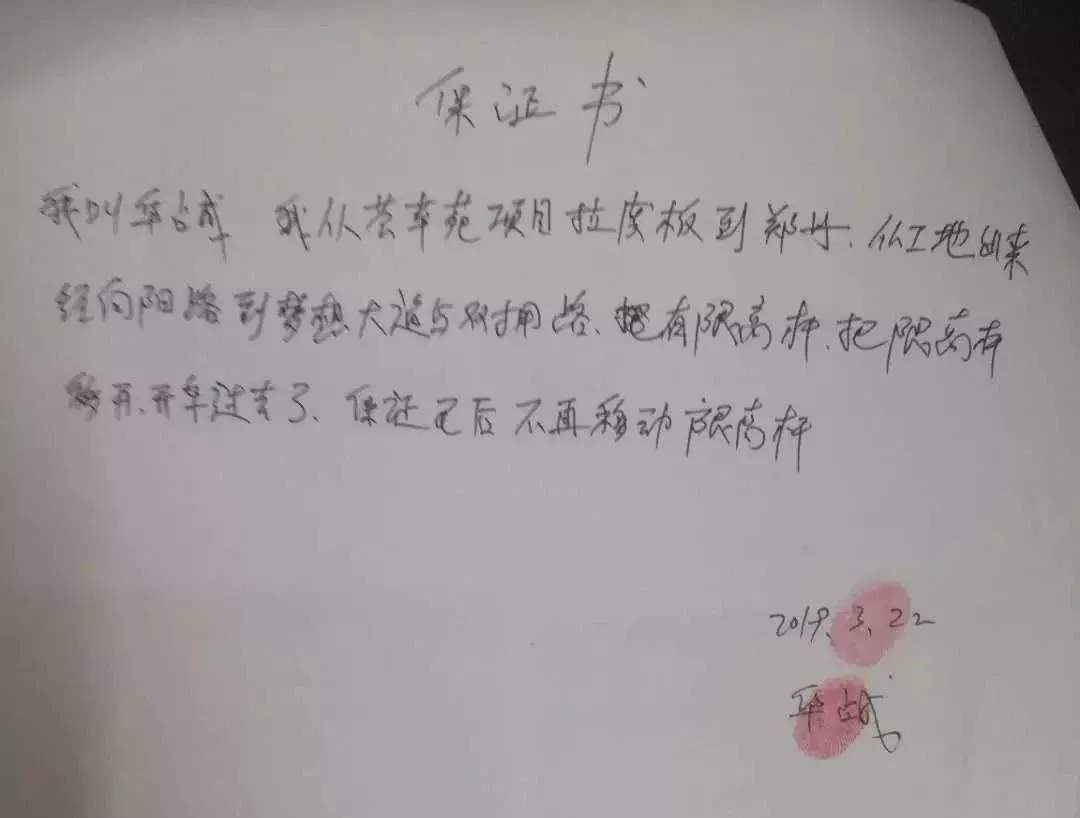 保证书
我叫华占成 我从芸车苑项目拉废板到郑州、从工地出来
经向阳路到梦想大道与双拥路、有限高杆、把限高杆
移开、开车过去了、保证已后不再移动限高杆
2019、3、22
华占成